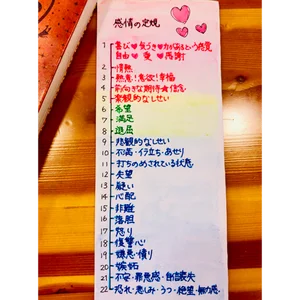 感情の定規
1 喜び♥気づき♥力があるという感覚
自由 ♥ 愛 ♥感謝
2 情熱
3 熱意!意欲!幸福
4 前向きな期待★信念
5 楽観的なしせい
6 希望
7 満足
8 退屈
9 悲観的なしせい
10 不満・イラ立ち・あせり
11 打ちのめされている状態
12 失望
13 疑い
14 心配
15 非難
16 落胆
17 怒り
18 復讐心
19 嫌悪・憤り
20 嫉妬
21 不安・罪悪感・自信喪失
22 恐れ・悲しみ・うつ・絶望・無力感